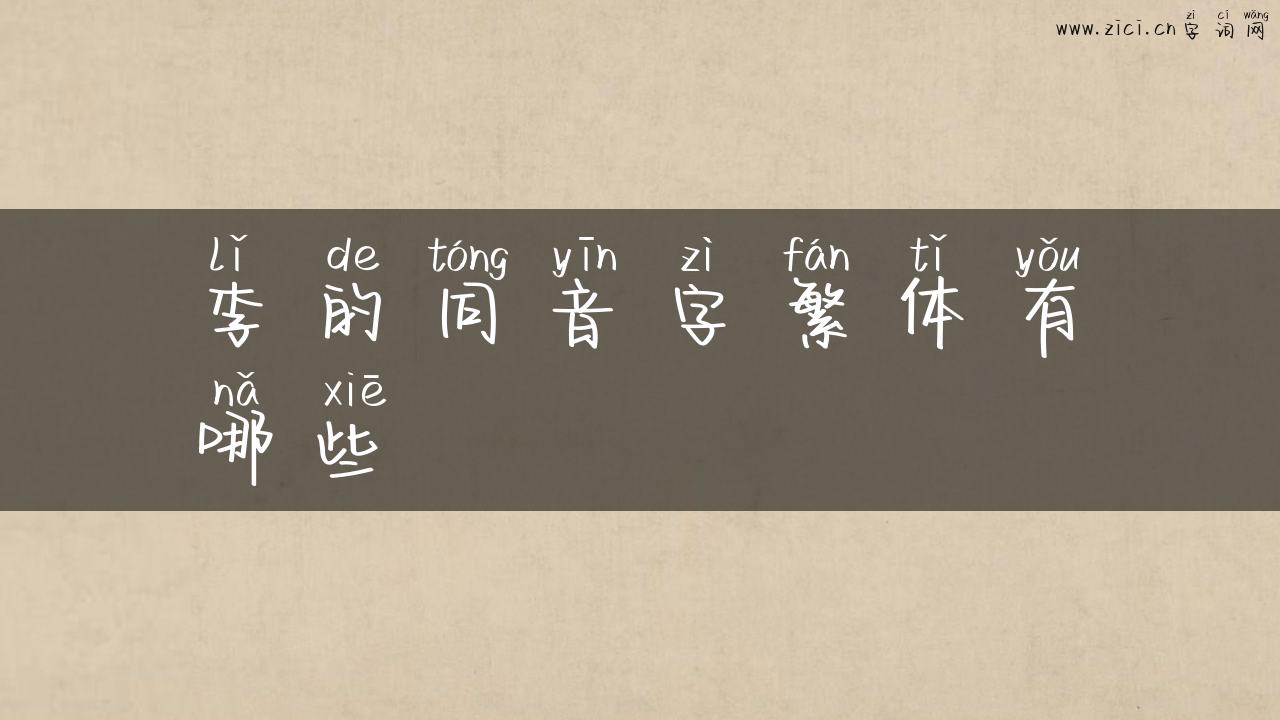 www.zici.cn 字词网
zì cí wǎng
lǐ de tóng yīn zì fán tǐ yǒu
李的同音字繁体有
nǎ xiē
哪些